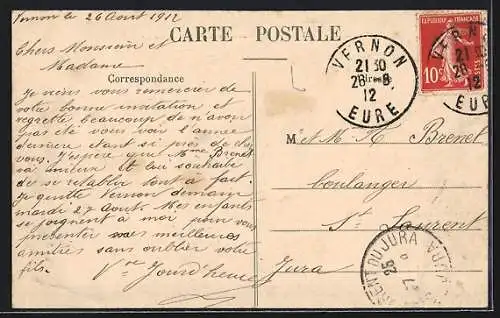 Vernon le 26 Août 1912
CARTE POSTALE
Chers Monsieur et
Madame
Correspondance
Je viens vous remercier de
votre bonne invitation et
regrette beaucoup de n'avoir
pas été vous voir l'année
dernière étant si près de chez
vous. J'espère que Mme Brenet
va mieux et lui souhaite
de se rétablir tout à fait.
Je quitte Vernon demain
mardi 27 Août. Mes enfants
se joignent à moi pour vous
présenter nos meilleures
amitiés sans oublier votre
fils.
Vve Jourd'heuil
VERNON
21 30
26 -8
12
EURE
REPUBLIQUE FRANÇAISE
10c
VERN
21
26
12
EURE
M r et M. Brenet
boulanger
St. Laurent
Jura
ENT DU JURA
JURA